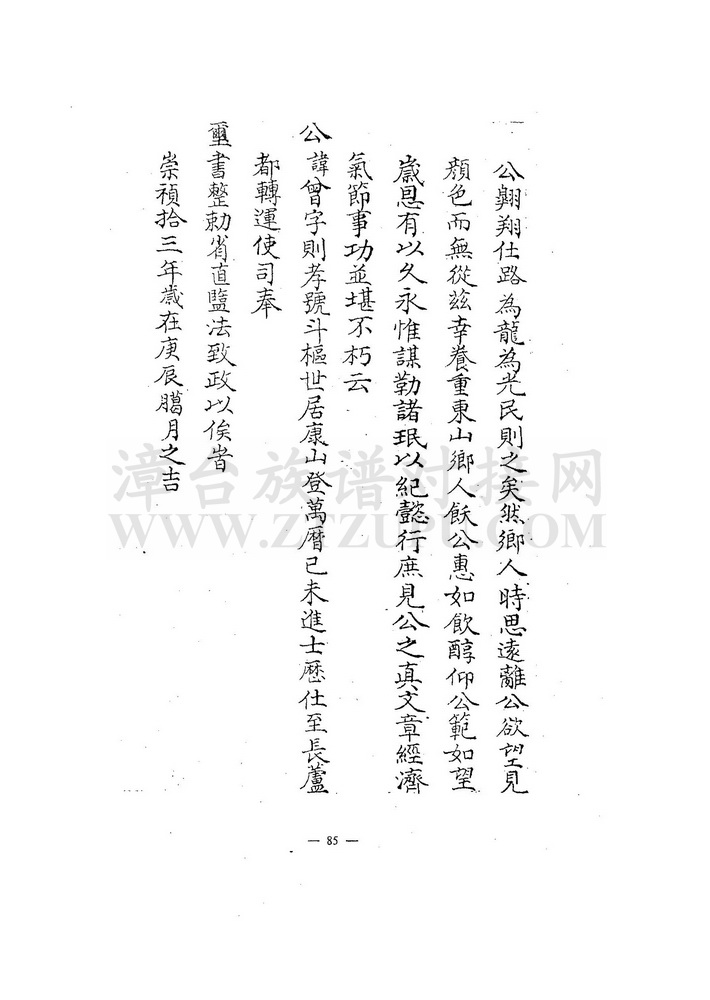 公翺翔仕路為龍為光民則之矣然鄉人時思遠離公欲望見
顏色而無從茲幸養重東山鄉人飫公惠如飲醇仰公範如望
歲思有以久永惟謀勒諸珉以紀懿行庶見公之真文章經濟
氣節事功並堪不朽云
公諱曾字則孝號斗樞世居康山登萬曆已未進士歷仕至長蘆
都轉運使司奉
璽書整勅省直鹽法致政以俟峕
崇禎拾三年歲在庚辰臈月之吉
— 85 —
漳台族谱对接网
WWW.ZTZUPU.COM